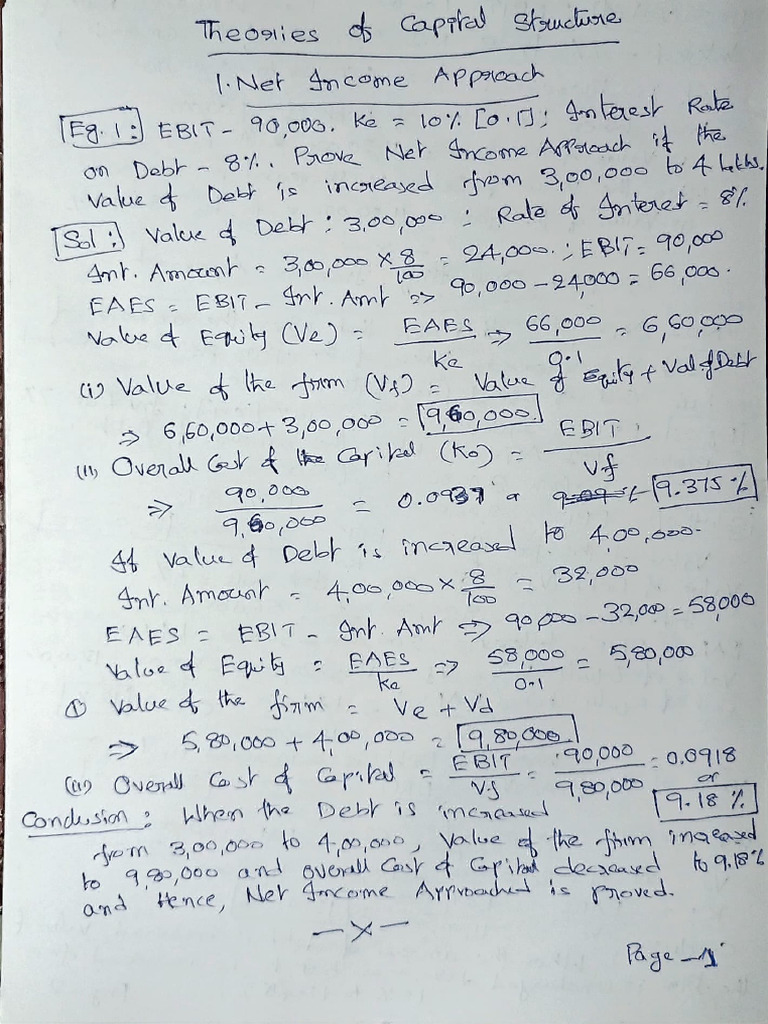 Theories of Capital Structure
1. Net Income Approach
Eg. 1: EBIT - 90,000. Ke = 10% [0.1]; Interest Rate
on Debt - 8%. Prove Net Income Approach if the
Value of Debt is increased from 3,00,000 to 4 lakhs.
Sol: Value of Debt: 3,00,000 ; Rate of Interest = 8%
Int. Amount = 3,00,000 × 8/100 = 24,000. ; EBIT = 90,000
EAES = EBIT - Int. Amt ⇒ 90,000 - 24,000 = 66,000.
Value of Equity (Ve) = EAES/Ke ⇒ 66,000/0.1 = 6,60,000
(i) Value of the firm (Vf) = Value of Equity + Val of Debt
⇒ 6,60,000 + 3,00,000 = 9,60,000
(ii) Overall Cost of Capital (Ko) = EBIT/Vf
⇒ 90,000/9,60,000 = 0.0937 9.375%
If Value of Debt is increased to 4,00,000.
Int. Amount = 4,00,000 × 8/100 = 32,000
EAES = EBIT - Int. Amt ⇒ 90,000 - 32,000 = 58,000
Value of Equity = EAES/Ke ⇒ 58,000/0.1 = 5,80,000
① Value of the firm = Ve + Vd
⇒ 5,80,000 + 4,00,000 = 9,80,000
(ii) Overall Cost of Capital = EBIT/Vf = 90,000/9,80,000 = 0.0918 or
9.18%
Conclusion: When the Debt is increased
from 3,00,000 to 4,00,000, Value of the firm increased
to 9,80,000 and overall Cost of Capital decreased to 9.18%
and Hence, Net Income Approached is proved.
—x—
Page -1